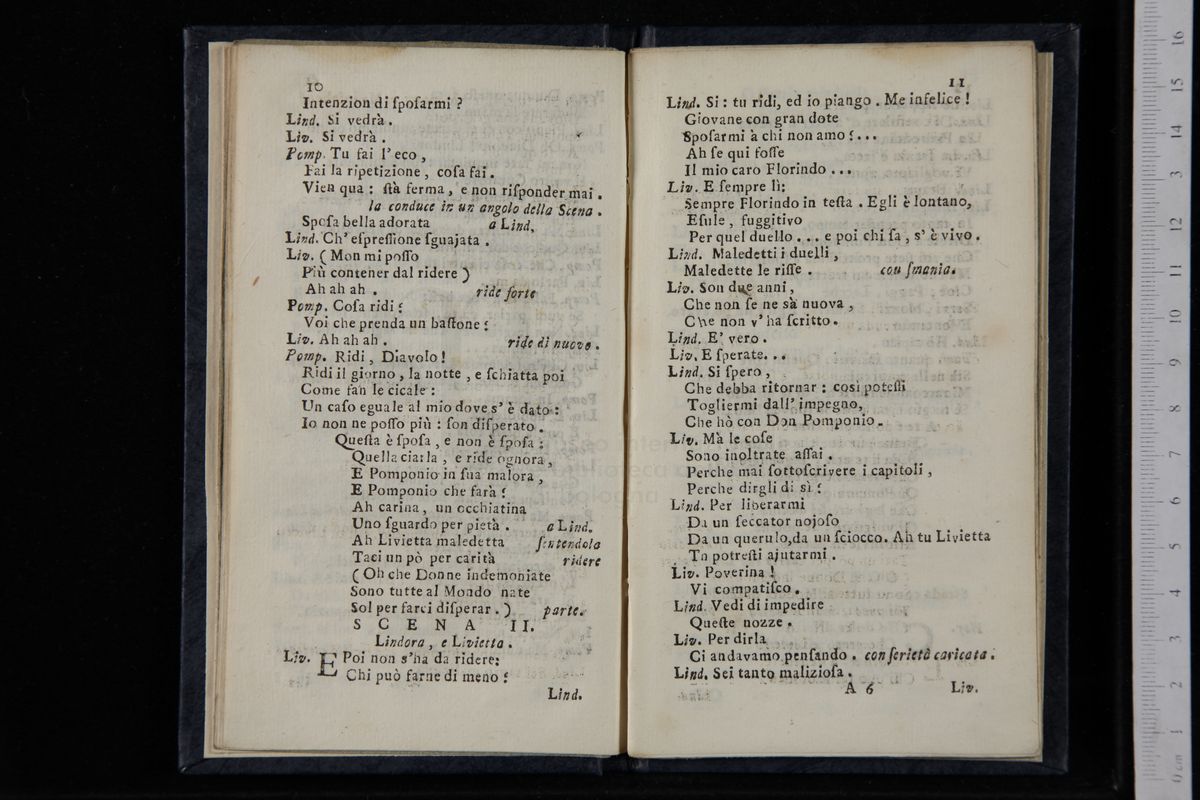 10
Intenzion di ſpoſarmi ?
Lind. Si vedrà .
Liv. Si vedrà .
Pomp. Tu fai l' eco ,
Fai la ripetizione , coſa fai .
Vien qua : ſtà ferma , e non riſponder mai .
la conduce in un angolo della Scena .
Spoſa bella adorata a Lind.
Lind. Ch' eſpreſſione ſguajata .
Liv. ( Mon mi poſſo
Più contener dal ridere )
Ah ah ah . ride forte
Pomp. Coſa ridi ?
Voi che prenda un baſtone ?
Liv. Ah ah ah . ride di nuovo .
Pomp. Ridi , Diavolo !
Ridi il giorno , la notte , e ſchiatta poi
Come fan le cicale :
Un caſo eguale al mio dove s' è dato :
Io non ne poſſo più : ſon diſperato .
Queſta è ſpoſa , e non è ſpoſa ;
Quella ciarla , e ride ognora ,
E Pomponio in ſua malora ,
E Pomponio che farà ?
Ah carina , un occhiatina
Uno ſguardo per pietà . a Lind.
Ah Livietta maledetta ſentendola
Taci un pò per carità ridere
( Oh che Donne indemoniate
Sono tutte al Mondo nate
Sol per farci diſperar . ) parte.
SCENA II.
Lindora , e Livietta .
Liv. E Poi non s'ha da ridere:
Chi può farne di meno ?
Lind.
11
Lind. Si : tu ridi, ed io piango . Me infelice !
Giovane con gran dote
Spoſarmi à chi non amo ? ...
Ah ſe qui foſſe
Il mio caro Florindo ...
Liv. E ſempre lì:
Sempre Florindo in teſta . Egli è lontano,
Eſule , fuggitivo
Per quel duello ... e poi chi ſa , s' è vivo .
Lind. Maledetti i duelli ,
Maledette le riſſe . con ſmania.
Liv. Son due anni ,
Che non ſe ne sà nuova ,
Che non v' ha ſcritto .
Lind. E' vero .
Liv. E ſperate. . .
Lind. Si ſpero ,
Che debba ritornar : così poteſſi
Togliermi dall' impegno,
Che hò con Don Pomponio .
Liv. Mà le coſe
Sono inoltrate aſſai .
Perche mai ſottoſcrivere i capitoli ,
Perche dirgli di sì ?
Lind. Per liberarmi
Da un ſeccator nojoſo
Da un querulo,da un ſciocco. Ah tu Livietta
Tn potreſti ajutarmi .
Liv. Poverina !
Vi compatiſco .
Lind. Vedi di impedire
Queſte nozze .
Liv. Per dirla
Ci andavamo penſando . con ſerietà caricata .
Lind. Sei tanto malizioſa .
A 6 Liv.